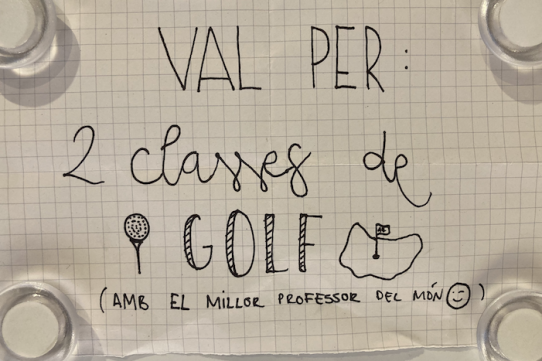 VAL PER:
2 classes de
GOLF
(AMB EL MILLOR PROFESSOR DEL MÓN)